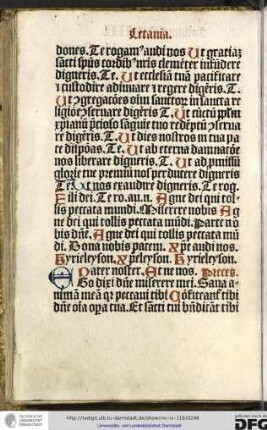 Letania.
dones. Te rogam⁹ audi nos Ut gratiā
sācti spūs cordib⁹ nr̄is clemēter infūdere
digneris. Te. Ut ecclesiā tuā pacificare
⁊ custodire adiuuare ⁊ regere digēris. T.
Ut ꝯgregatōes oīm sanctoꝝ in sancta re
ligiōe ꝯseruare digēris T. Ut cūctū
xpianū p̄cioso sāguīe tuo redēptū ꝯserua
re digēris. T. Ut dies nostros in tua pa
ce dispōas. Te. Ut ab eterna damnatōe
nos liberare digneris. T. Ut ad
glorie tue premiū nos perducere digneris
Te. Ut nos exaudire digneris. Te rog.
Fili dei. Te ro. au. n. Agne dei qui tol
lis peccata mundi. Miserere nobis Ag
ne dei qui tollis peccata mūdi. Parce nō
bis dn̄e. Agne dei qui tollis peccata mū
di. Dona nobis pacem. Xp̄e audi nos.
Kyrieleyson. Xp̄eleyson. Kyrieleyson.
Pater noster. Et ne nos. Preces.
Ego dixi dn̄e miserere mei. Sana a-
nimā meā qꝛ peccaui tibi Cōfiteant̄ tibi
dn̄e oīa opa tua. Et sācti tui bn̄dicāt tibi
http://tudigit.ulb.tu-darmstadt.de/show/inc-ii-116/0248
Universitäts- und Landesbibliothek Darmstadt
DFG